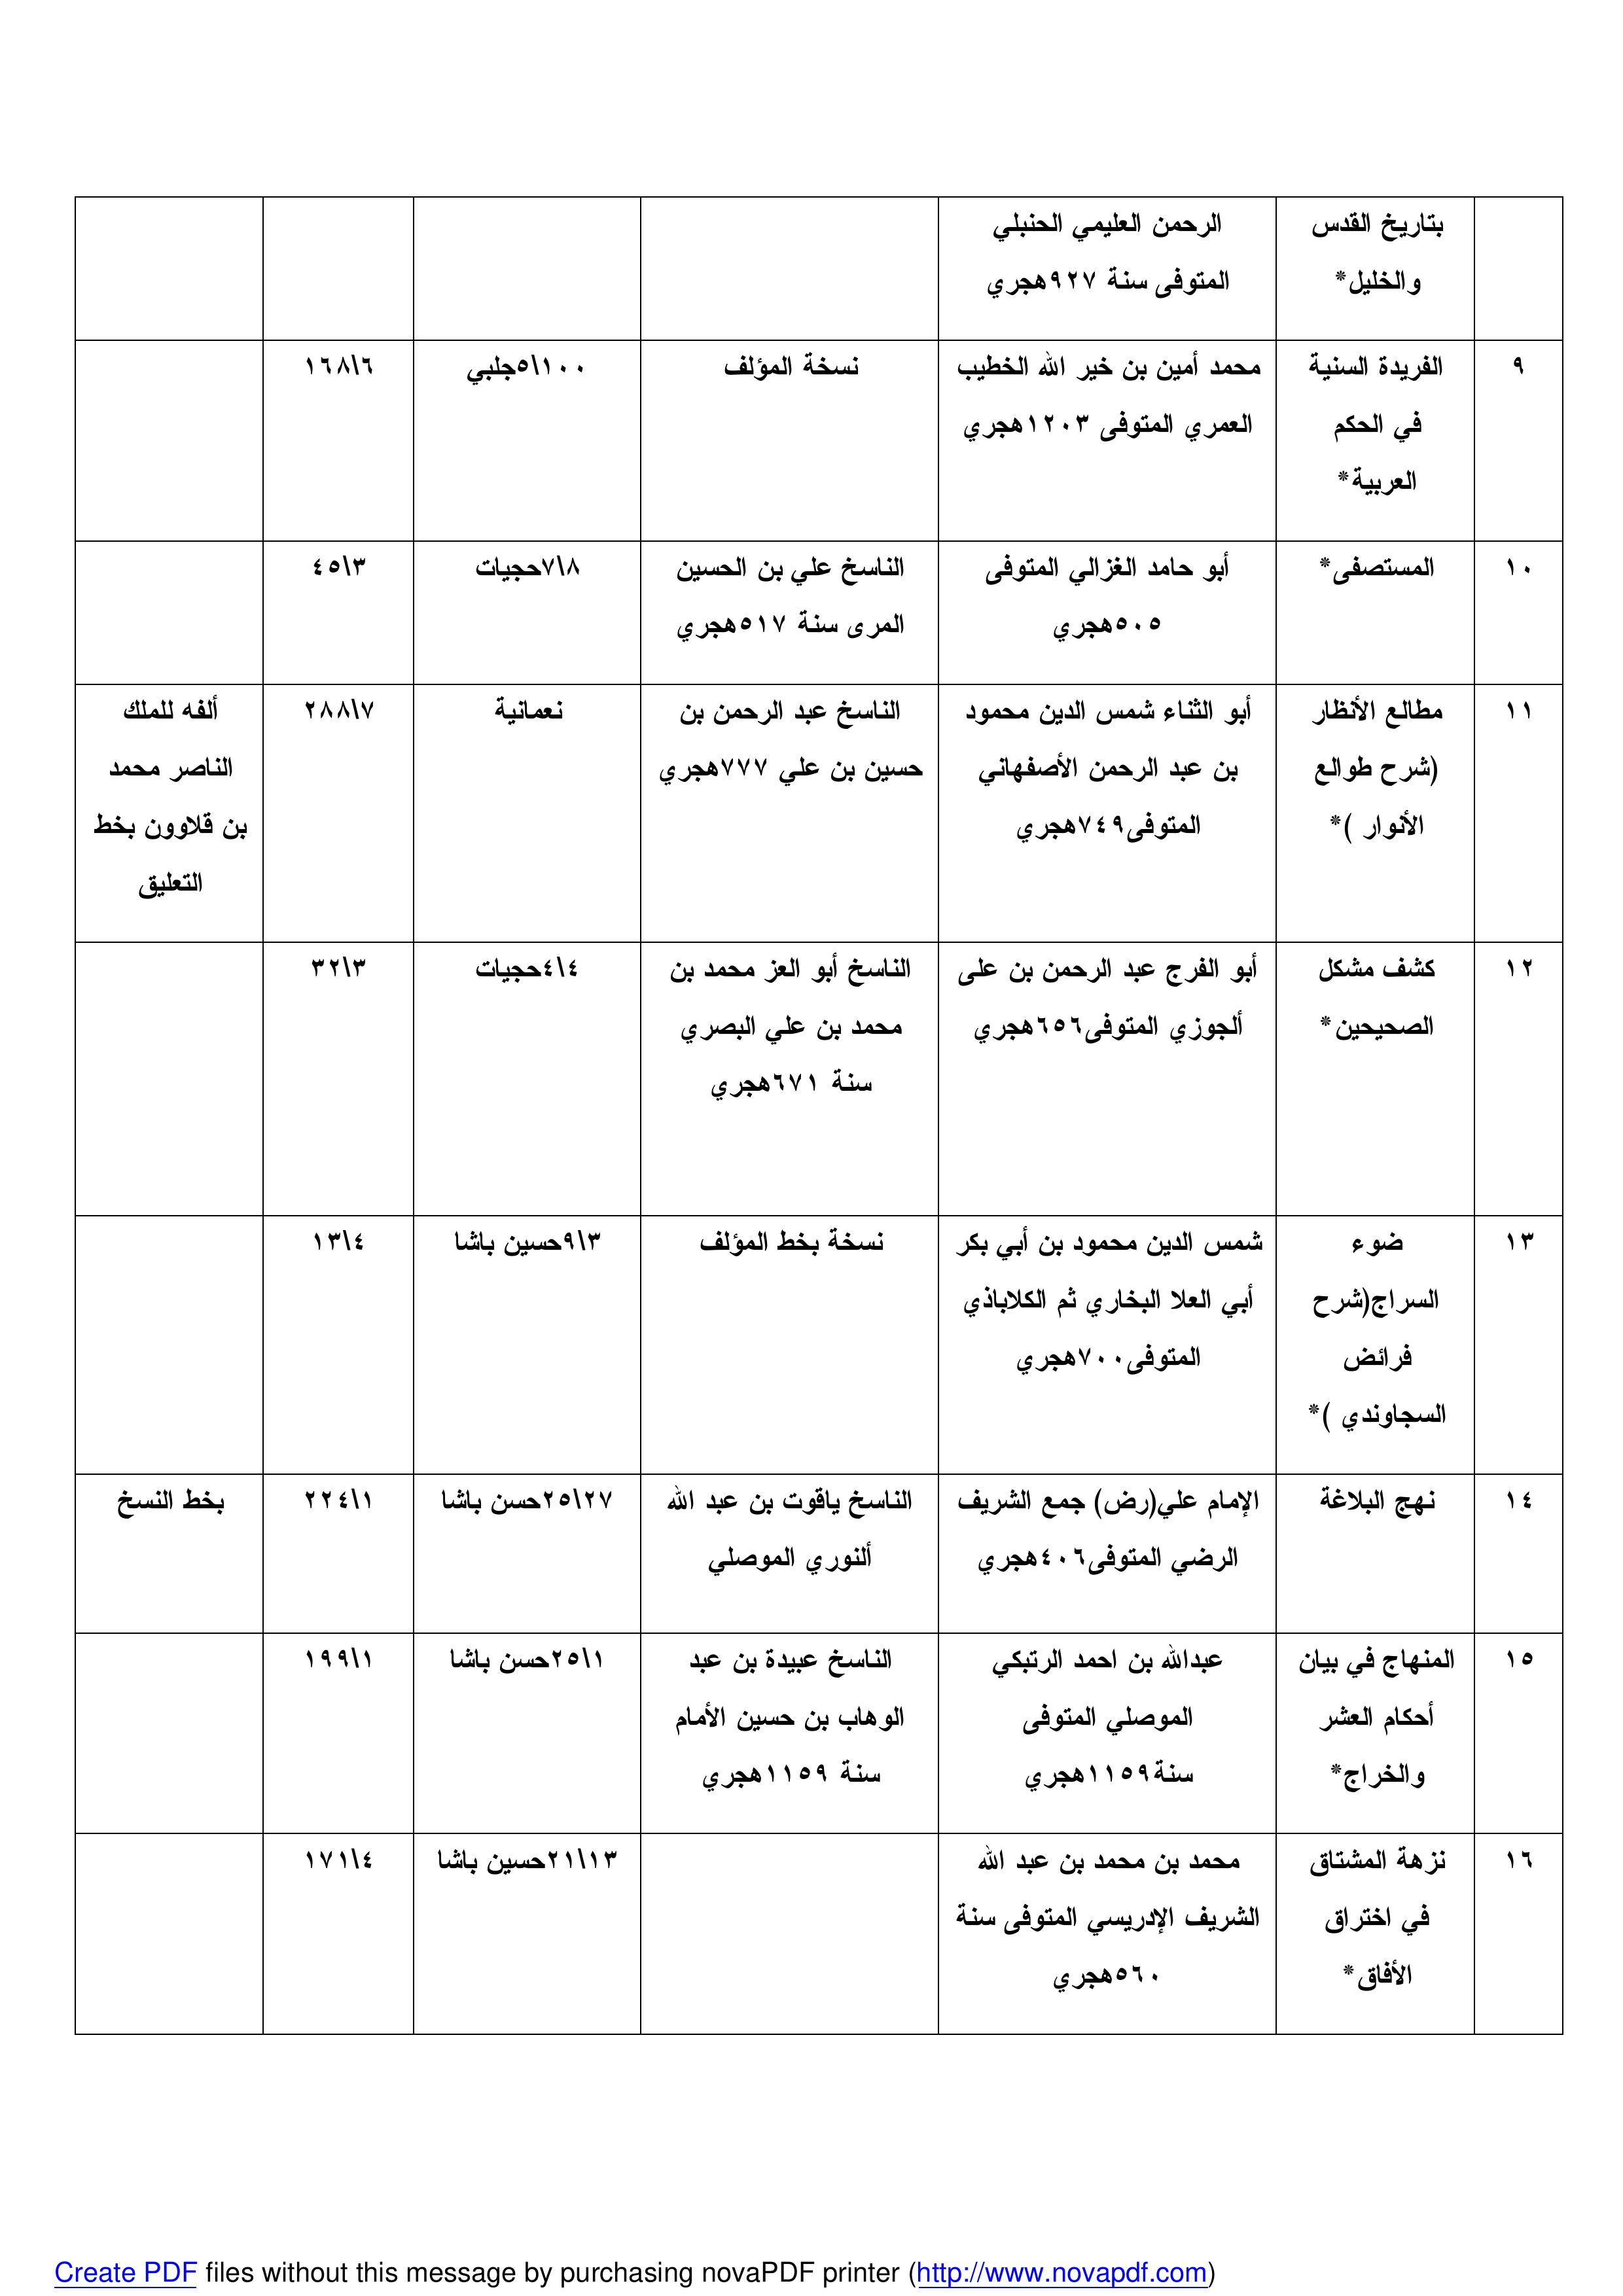 بتاريخ القدس
والخليل*
الرحمن العليمي الحنبلي
المتوفى سنة ٩٢٧هجري
٩
الفريدة السنية
في الحكم
العربية*
محمد أمين بن خير الله الخطيب
العمري المتوفى ١٢٠٣هجري
نسخة المؤلف
١٠٠\٥جلبي
٦\١٦٨
١٠
المستصفى*
أبو حامد الغزالي المتوفى
٥٠٥هجري
الناسخ علي بن الحسين
المرى سنة ٥١٧هجري
٨\٧حجيات
٣\٤٥
١١
مطالع الأنظار
(شرح طوالع
الأنوار )*
أبو الثناء شمس الدين محمود
بن عبد الرحمن الأصفهاني
المتوفى٧٤٩هجري
الناسخ عبد الرحمن بن
حسين بن علي ٧٧٧هجري
نعمانية
٧\٢٨٨
ألفه للملك
الناصر محمد
بن قلاوون بخط
التعليق
١٢
كشف مشكل
الصحيحين*
أبو الفرج عبد الرحمن بن على
ألجوزي المتوفى٦٥٦هجري
الناسخ أبو العز محمد بن
محمد بن علي البصري
سنة ٦٧١هجري
٤\٤حجيات
٣\٣٢
١٣
ضوء
السراج(شرح
فرائض
السجاوندي )*
شمس الدين محمود بن أبي بكر
أبي العلا البخاري ثم الكلاباذي
المتوفى٧٠٠هجري
نسخة بخط المؤلف
٣\٩حسين باشا
٤\١٣
١٤
نهج البلاغة
الإمام علي(رض) جمع الشريف
الرضي المتوفى٤٠٦هجري
الناسخ ياقوت بن عبد الله
ألنوري الموصلي
٢٧\٢٥حسن باشا
١\٢٢٤
بخط النسخ
١٥
المنهاج في بيان
أحكام العشر
والخراج*
عبدالله بن احمد الرتبكي
الموصلي المتوفى
سنة١١٥٩هجري
الناسخ عبيدة بن عبد
الوهاب بن حسين الأمام
سنة ١١٥٩هجري
١\٢٥حسن باشا
١\١٩٩
١٦
نزهة المشتاق
في اختراق
الأفاق*
محمد بن محمد بن عبد الله
الشريف الإدريسي المتوفى سنة
٥٦٠هجري
١٣\٢١حسين باشا
٤\١٧١
Create PDF files without this message by purchasing novaPDF printer (http://www.novapdf.com)